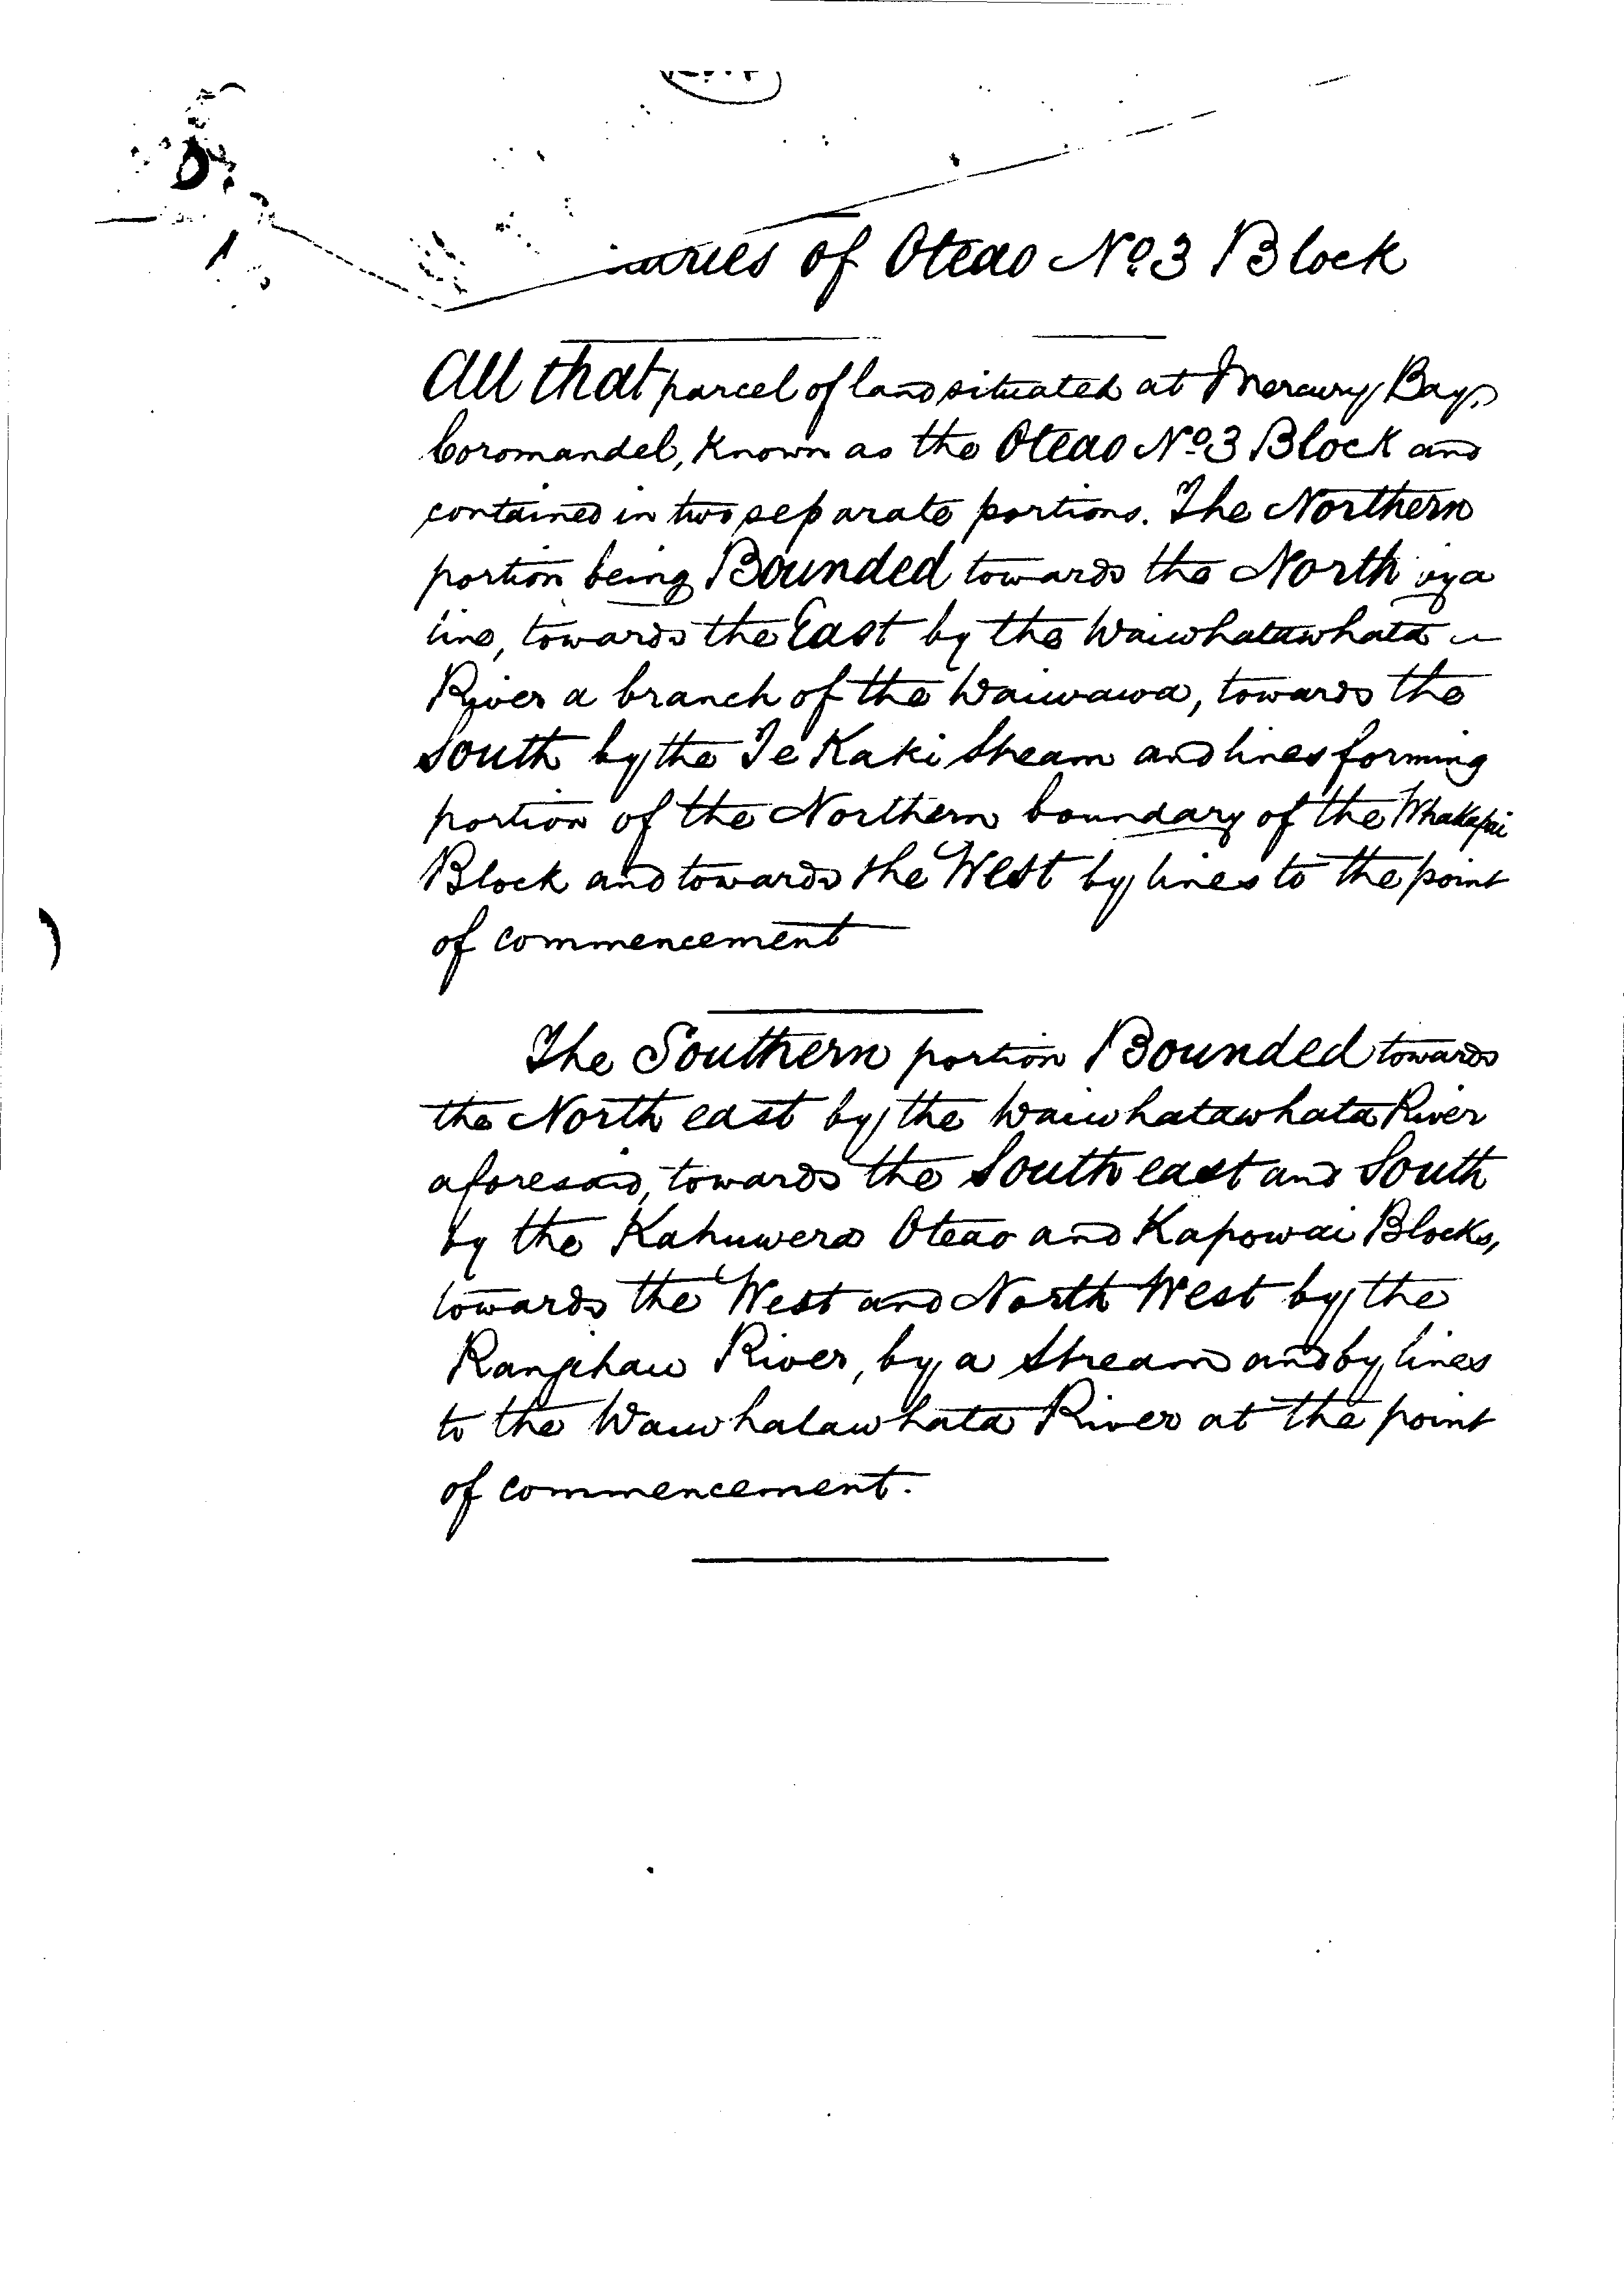 of Oteao No. 3 Block
All that parcel of land situated at Mercury Bay,
Coromandel, Known as the Oteao No. 3 Block and
contained in two separate portions. The Northern
portion being Bounded towards the North by a
line, towards the East by the Waiwhatawhata
River a branch of the Waiwawa, towards the
South by the Te Kaki Stream and lines forming
portion of the Northern boundary of the Whakapai
Block and towards the West by lines to the point
of commencement
The Southern portion Bounded towards
the North east by the Waiwhatawhata River
aforesaid, towards the South east and South
by the Kahuwera Oteao and Kapowai Blocks,
towards the West and North West by the
River, by a Stream and by lines
to the Waiwhatawhata River at the point
of commencement.